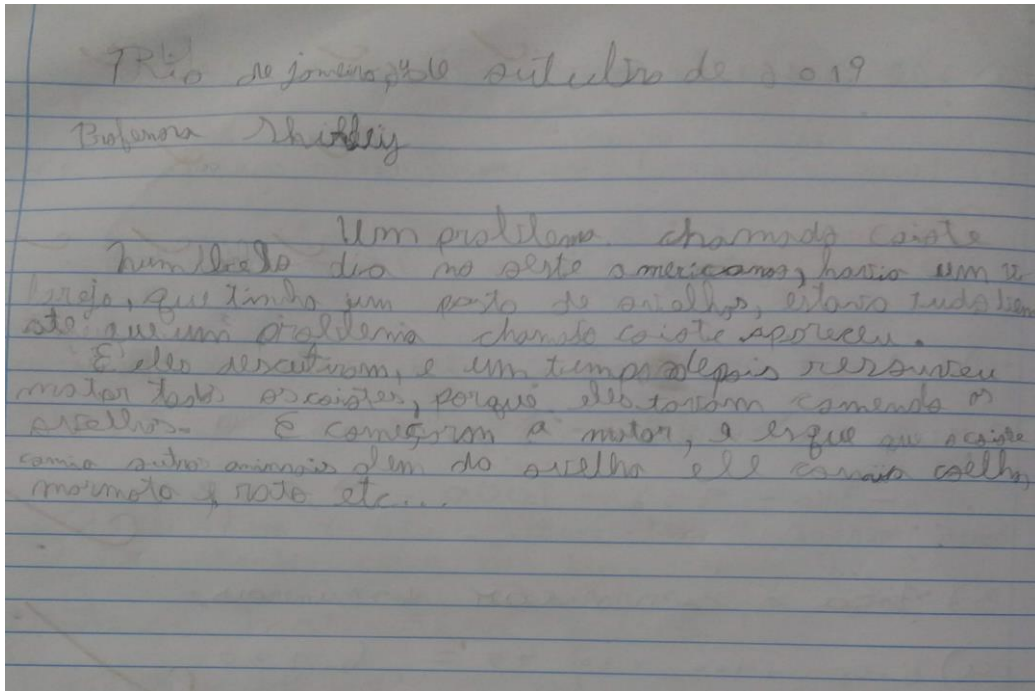 Rio de janeiro, de outubro de 2019
Professora Shirley
Um problema chamado coiote
num belo dia no oeste americanos, havia um vi
larejo, que tinha um pasto de ovelhas, estava tudo bem
ate que um problema chamdo coiote apareceu.
E eles descutiram, e um tempo depois resouveu
matar todos os coiotes, porque eles tavam comendo os
ovelhas. E começaram a matar, e esque que o coiote
comia outro animais alem do ovelha ele comia coelho,
marmota, rato etc...